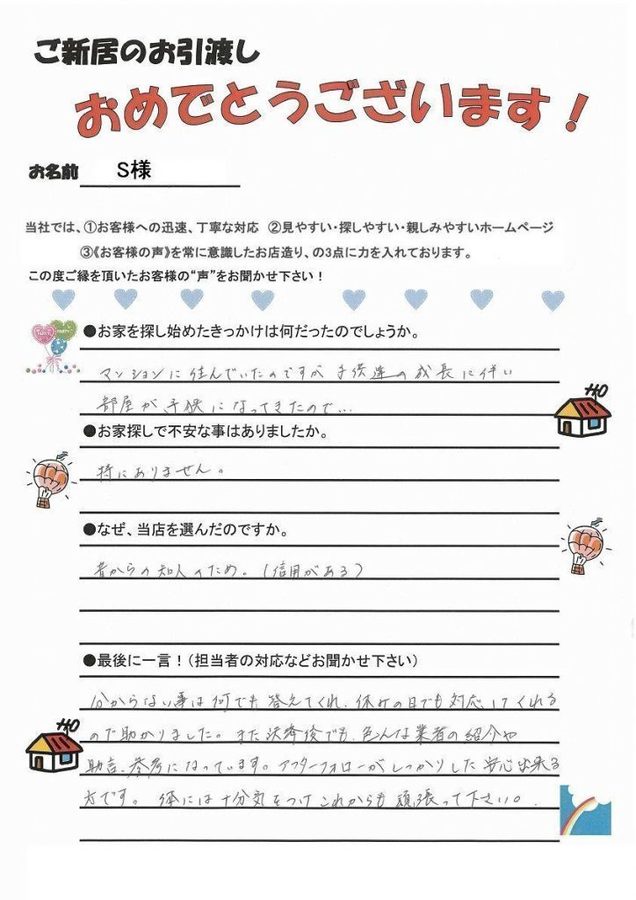 ご新居のお引渡し
おめでとうございます！
お名前 S様
当社では、①お客様への迅速、丁寧な対応 ②見やすい・探しやすい・親しみやすいホームページ
③《お客様の声》を常に意識したお店造り、の3点に力を入れております。
この度ご縁を頂いたお客様の“声”をお聞かせ下さい！
●お家を探し始めたきっかけは何だったのでしょうか。
マンションに住んでいたのですが子供達の成長に伴い
部屋が手狭になってきたので…
●お家探しで不安な事はありましたか。
特にありません。
●なぜ、当店を選んだのですか。
昔からの知人のため。（信用がある）
●最後に一言！（担当者の対応などお聞かせ下さい）
分からない事は何でも答えてくれ、休みの日でも対応してくれる
ので助かりました。また決済後でも、色んな業者の紹介や
助言、参考になっています。アフターフォローがしっかりした安心出来る
方です。体には十分気をつけこれからも頑張って下さい。